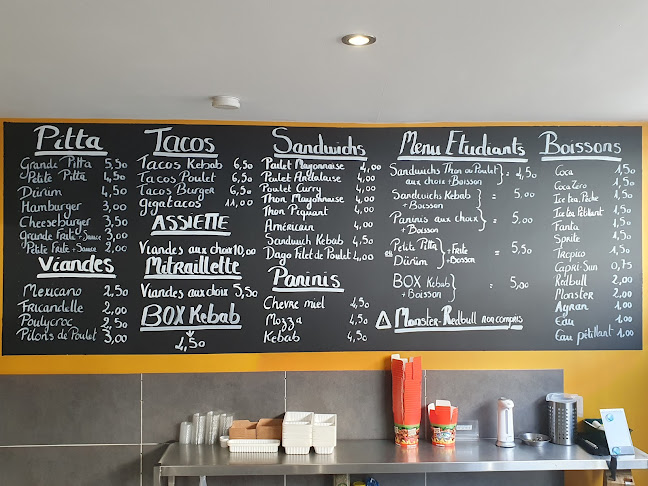 Pitta
Grande Pitta 5,50
Petite Pitta 4,50
Dürüm 4,50
Hamburger 3,00
Cheeseburger 3,50
Grande Frite + Sauce 3,00
Petite Frite + Sauce 2,00
Viandes
Mexicano 2,50
Fricandelle 2,00
Poulycroc 2,50
Pilons de Poulet 3,00
Tacos
Tacos Kebab 6,50
Tacos Poulet 6,50
Tacos Burger 6,50
gigatacos 11,00
ASSIETTE
Viandes aux choix 10,00
Mitraillette
Viandes aux choix 5,50
BOX Kebab
4,50
Sandwichs
Poulet Mayonnaise 4,00
Poulet Andalouse 4,00
Poulet Curry 4,00
Thon Mayonnaise 4,00
Thon Piquant 4,00
Américain 4,00
Sandwich Kebab 4,50
Dago Filet de Poulet 4,00
Paninis
Chevre miel 4,50
Mozza 4,50
Kebab 4,50
Menu Etudiants
Sandwichs Thon ou Poulet = 4,50
aux choix + Boisson
Sandwichs Kebab = 5,00
+ Boisson
Paninis aux choix = 5,00
+ Boisson
Petite Pitta + Frite
ou Dürüm + Boisson
BOX Kebab = 5,00
+ Boisson
Monster-Redbull non compris
Boissons
Coca 1,50
Coca Zero 1,50
Ice tea Pêche 1,50
Ice tea Pétillant 1,50
Fanta 1,50
Sprite 1,50
Tropico 1,50
Capri-Sun 0,75
Redbull 2,00
Monster 2,00
Ayran 1,00
Eau 1,00
Eau pétillant 1,00